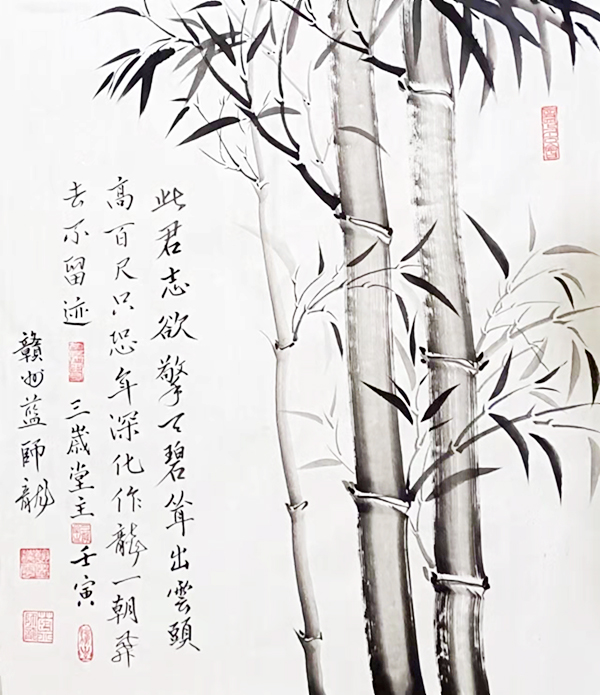 此君志欲擎天碧聳出雲頭
高百尺只恐年深化作龍一朝飛
去不留迹
三歳堂主 壬寅
贛州藍師龍